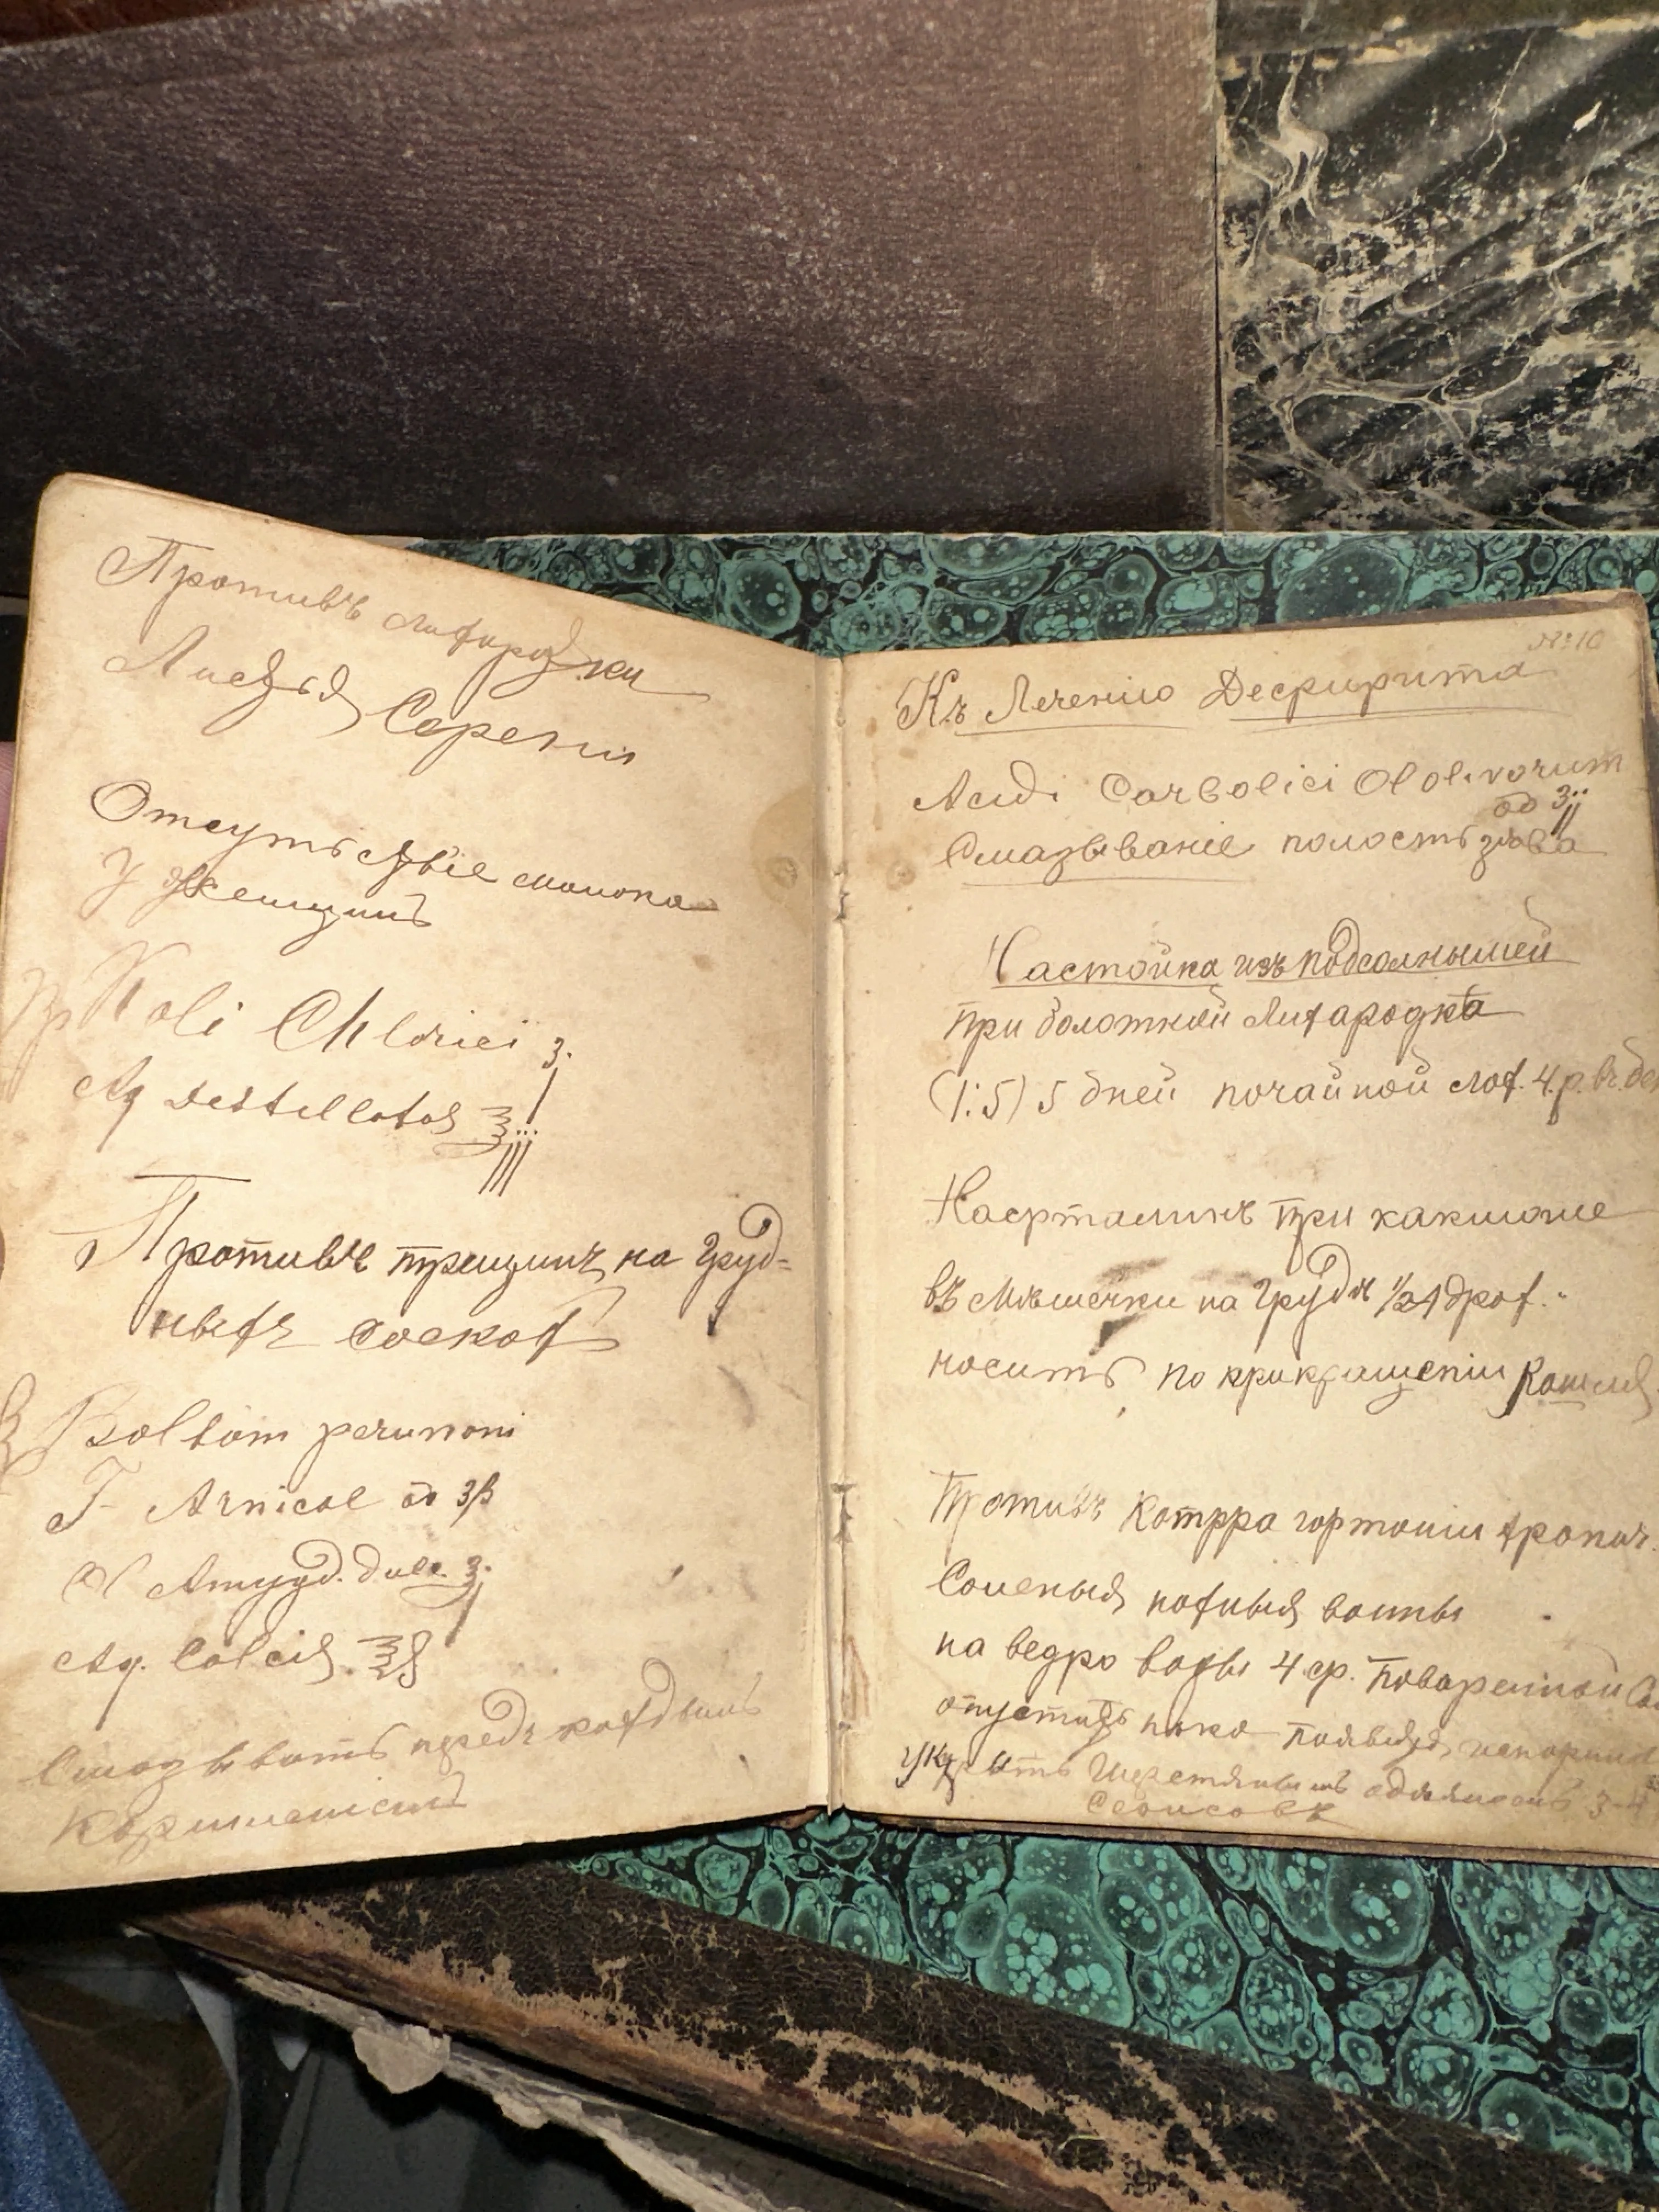 Противъ лихорадки
Листья Сирени
Отсутьствіе молока
У женщинъ
Kali Chlorici ʒ j
Aq destillatae ℥ iii
Противъ трещинъ на груд=
ныхъ соскахъ
Balsam peruviani
T- Arnicae aa ʒβ
Ol Amygd. dulc. ʒ j
Aq. Calcis ℥
Смазывать передъ каждымъ
Кормленіемъ
№ 10
Къ Леченію Дифтерита
Acidi Carbolici Ol olivarum
aa ʒ ij
Смазываніе полость зѣва
Настойка изъ подсолнышей
при болотной Лихародкѣ
(1:5) 5 дней почайной лож. 4.р. въ де
Нафталинъ при каклюше
въ мѣшечки на груди 1/2 драх.
носить по прикращеніи Кашля
Противъ Катрра гортании хронич.
Соленыя ножныя ванны
на ведро воды 4 ф. Поваренной Со
опустить ноки
Укрыть Шерстянымъ одѣяломъ 3-4